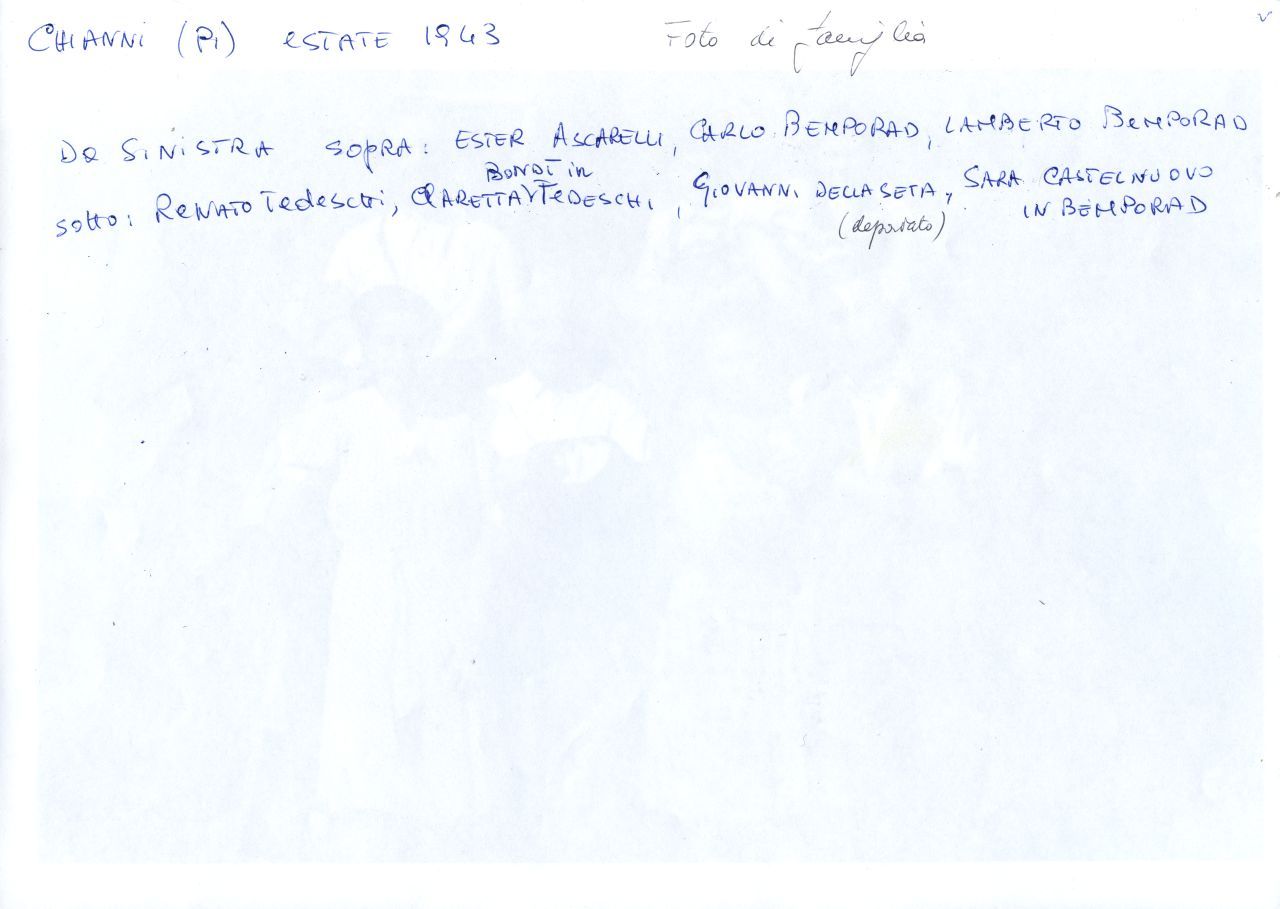 CHIANNI (PI) ESTATE 1943 Foto di famiglia
DA SINISTRA SOPRA: ESTER ASCARELLI, CARLO BEMPORAD, LAMBERTO BEMPORAD
BONDÌ in
sotto: RENATO Tedeschi, CLARETTA TEDESCHI, GIOVANNI DELLA SETA, SARA CASTELNUOVO
(deportato) IN BEMPORAD